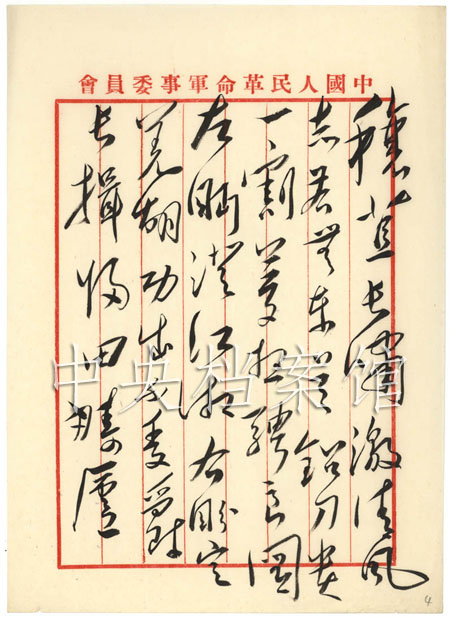 中國人民革命軍事委員會
穰苴長嘯激清風
志若無東吳鉛刀貴
一割夢想騁良圖
左眄澄江湘右盼定
羌胡功成不受爵
長揖歸田疇廬
中央档案馆
4